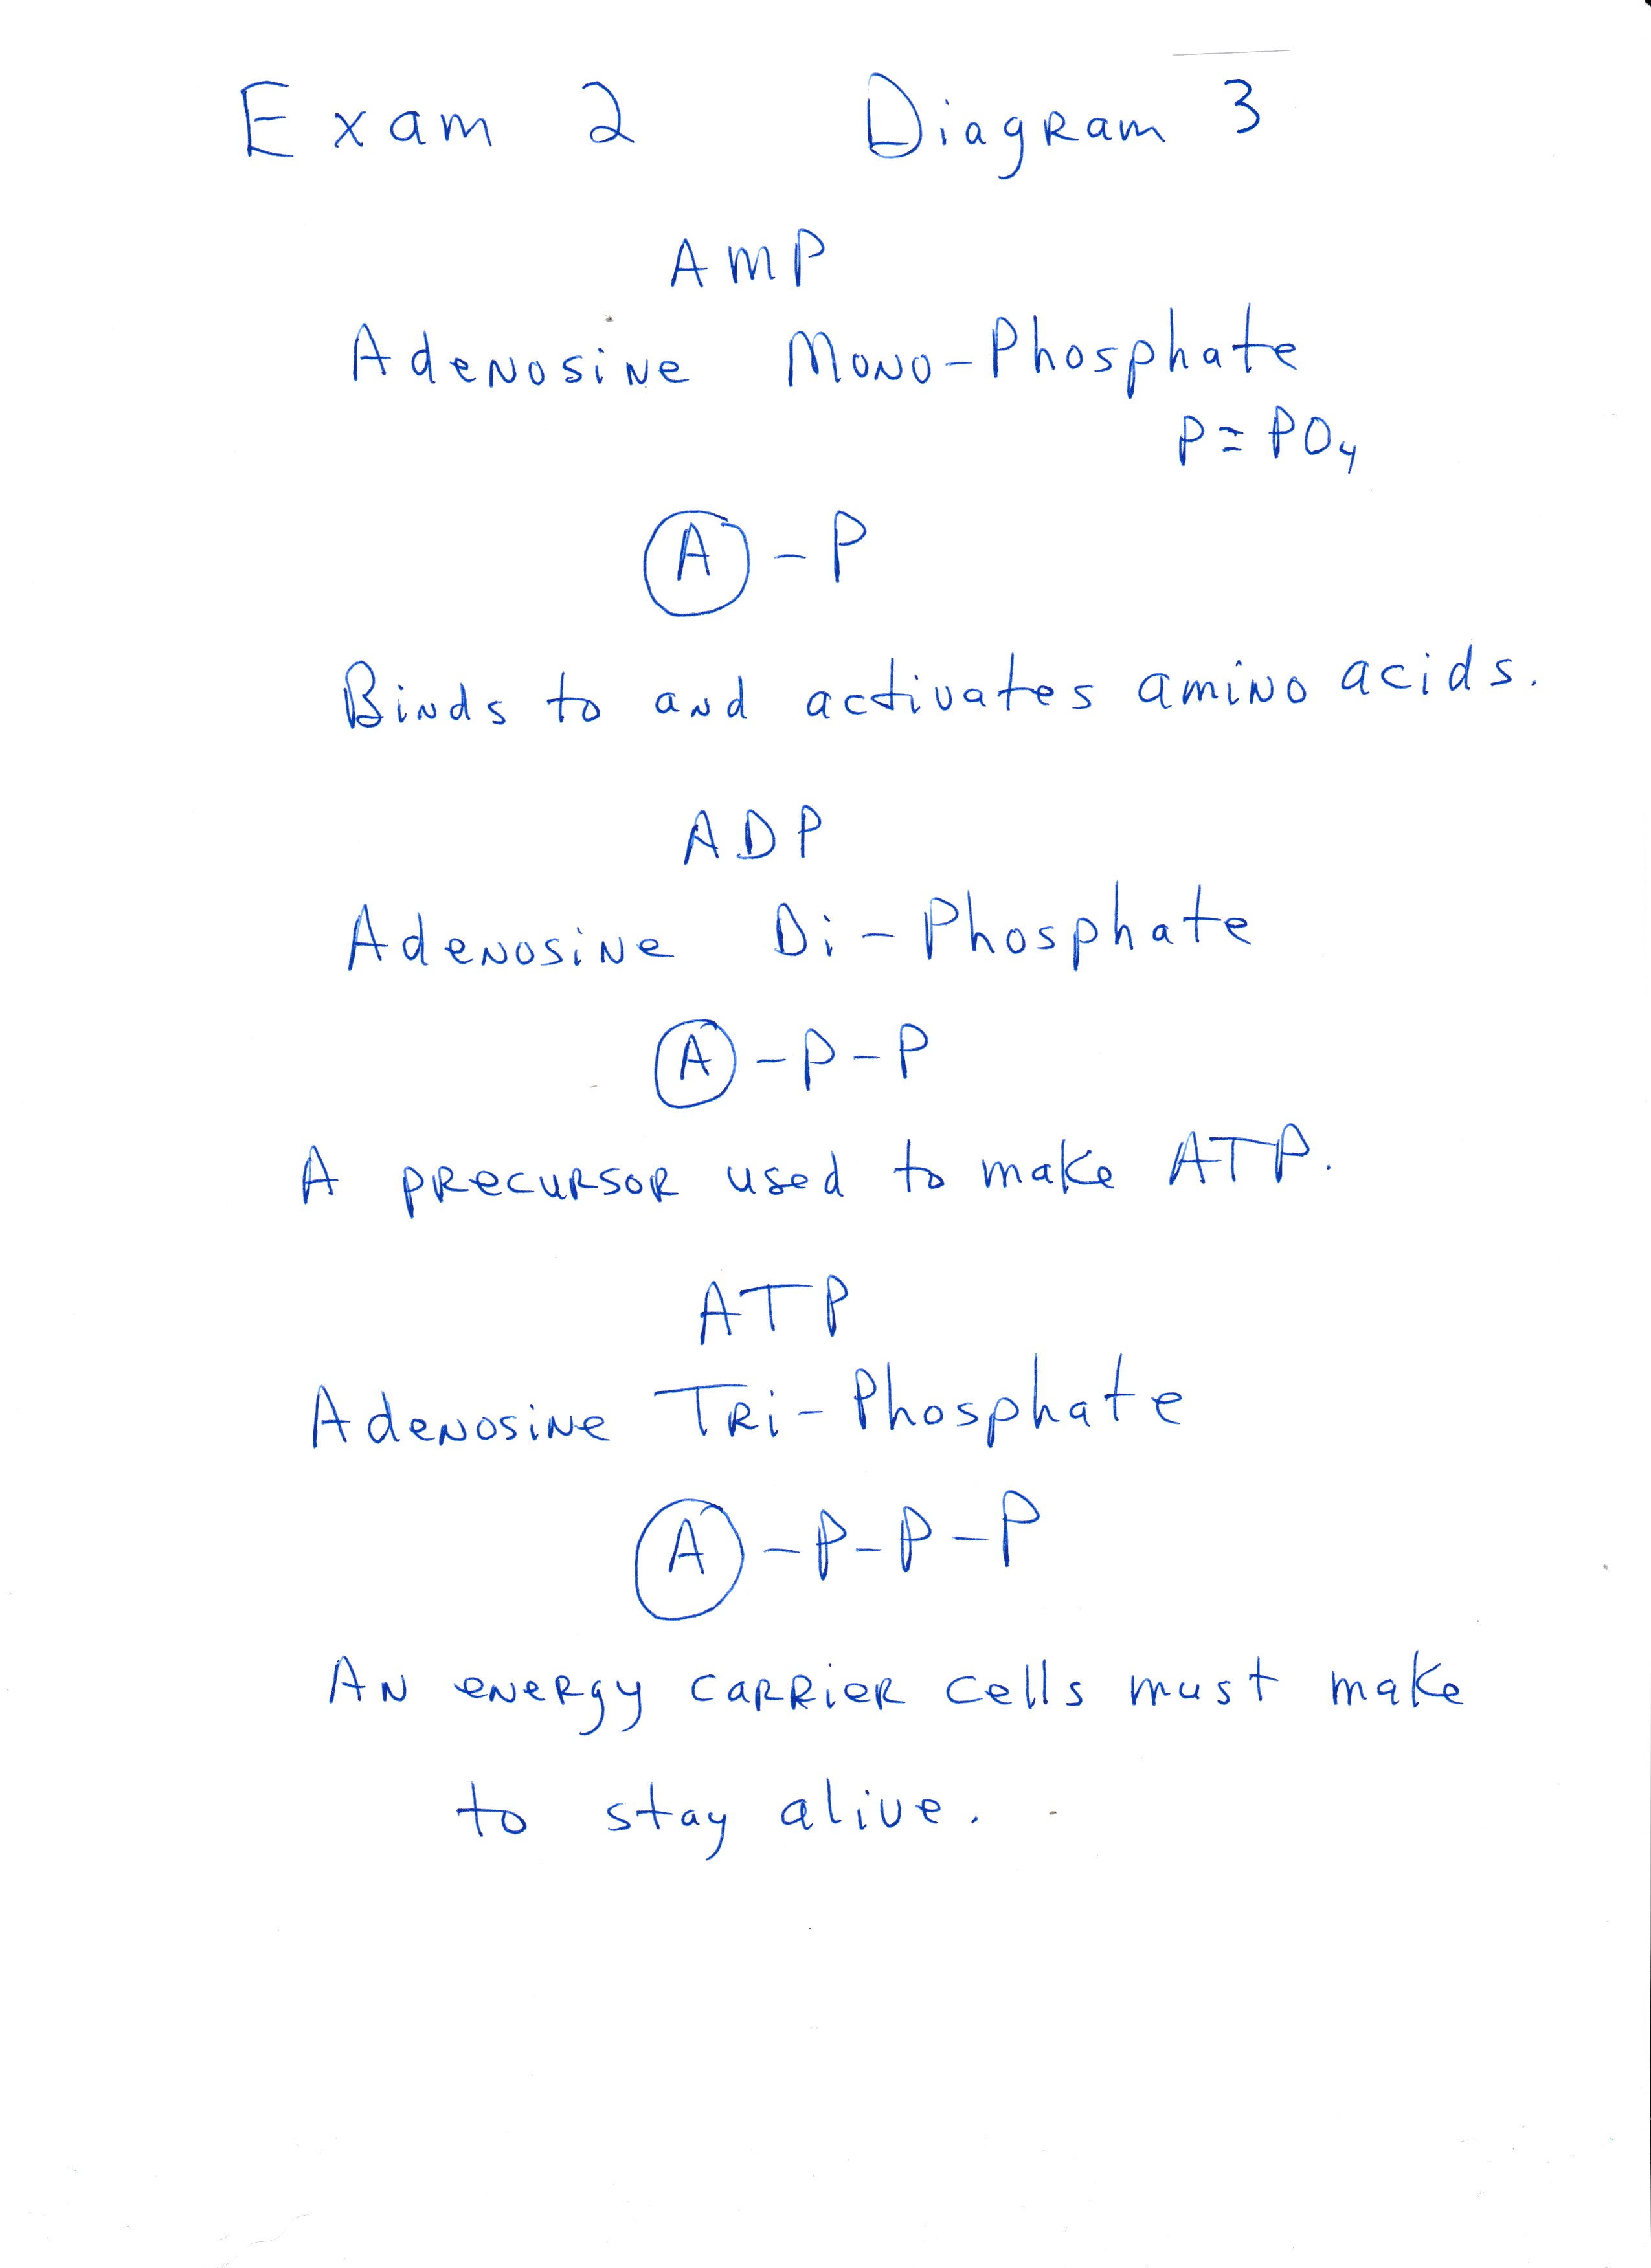 Exam 2 Diagram 3
AMP
Adenosine Mono-Phosphate
P = PO4
A - P
Binds to and activates amino acids.
ADP
Adenosine Di-Phosphate
A - P - P
A precursor used to make ATP.
ATP
Adenosine Tri-Phosphate
A - P - P - P
An energy carrier cells must make
to stay alive.